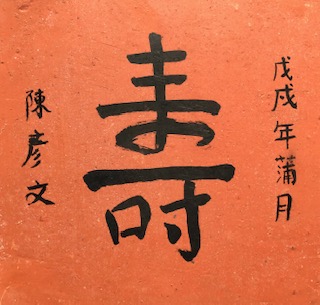 戊戌年蒲月
壽
陳彦文